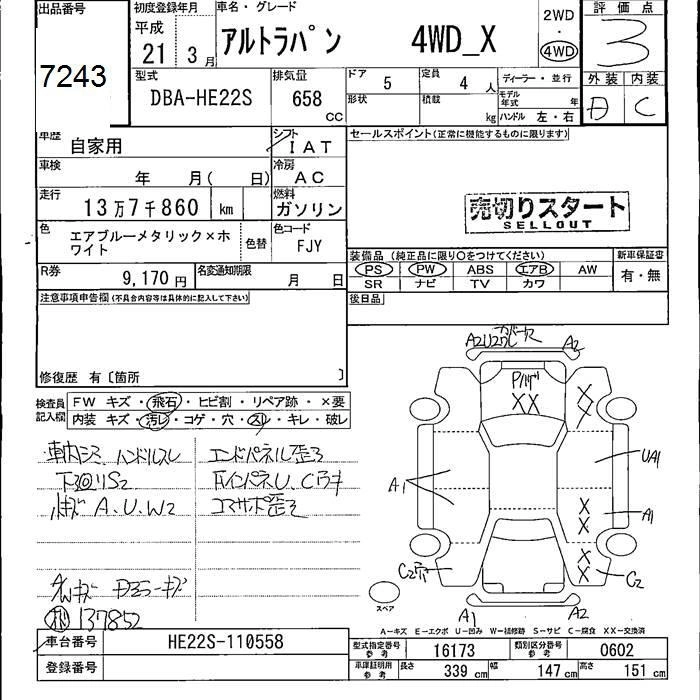 出品番号
7243
初度登録年月
平成
21 年 3 月
車名・グレード
アルトラパン 4WD_X
2WD
・
4WD
評価点
3
外装 内装
C
型式
DBA-HE22S
排気量
658
CC
ドア
5
定員
4 人
形状
積載
kg
ディーラー・並行
モデル年式 年
ハンドル 左・右
車歴
自家用
シフト
IAT
車検
年 月( 日)
冷房
AC
走行
13万7千860 km
燃料
ガソリン
色
エアブルーメタリック×ホ
ワイト
色替
色コード
FJY
R券
9,170 円
名変通知期限
月 日
セールスポイント(正常に機能するものに限ります)
売切りスタート
SELLOUT
装備品 (純正品に限り○をつけてください)
PS PW ABS エアB AW
SR ナビ TV カワ
新車保証書
有・無
後日品
注意事項申告欄(不具合内容等は具体的に記入して下さい)
修復歴 有〔箇所 〕
検査員
記入欄
FW キズ・飛石・ヒビ割・リペア跡・×要
内装 キズ・汚レ・コゲ・穴・スレ・キレ・破レ
ハンドルスレ
エンドパネル歪ミ
A.U.W2
コアサポ歪ミ
137852
A2
A2
XX
X
X
UA1
A1
A1
X
X
X
X
C2
C2
スペア
A1
A2
A-キズ E-エクボ U-凹み W-補修跡 S-サビ C-腐食 XX-交換済
車台番号
HE22S-110558
登録番号
型式指定番号
参考
16173
類別区分番号
参考
0602
車庫証明用
参考
長さ 339 cm 幅 147 cm 高さ 151 cm